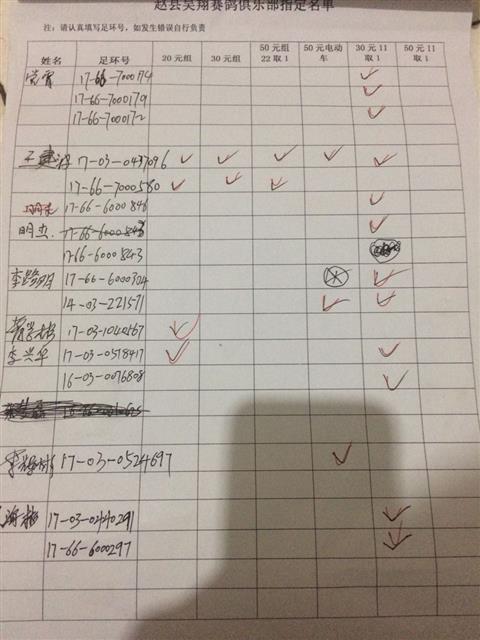 赵县昊翔赛鸽俱乐部指定名单
注：请认真填写足环号，如发生错误自行负责
姓名 足环号 20元组 30元组 50元组22取1 50元电动车 30元11取1 50元11取1
17-66-700174 ✓
17-66-7000179 ✓
17-66-7000172 ✓
王建 17-03-0437096 ✓ ✓ ✓ ✓ ✓
17-66-7000580 ✓ ✓ ✓
17-66-6000846 ✓
17-66-6000843 ✓
17-66-6000843
李 明 17-66-6000304 ✓
14-03-221571 ✓ ✓
17-03-1040567 ✓
李兴华 17-03-0578417 ✓ ✓
16-03-0076808 ✓
李 17-03-0524697 ✓
17-03-0440291 ✓
17-66-6000297 ✓